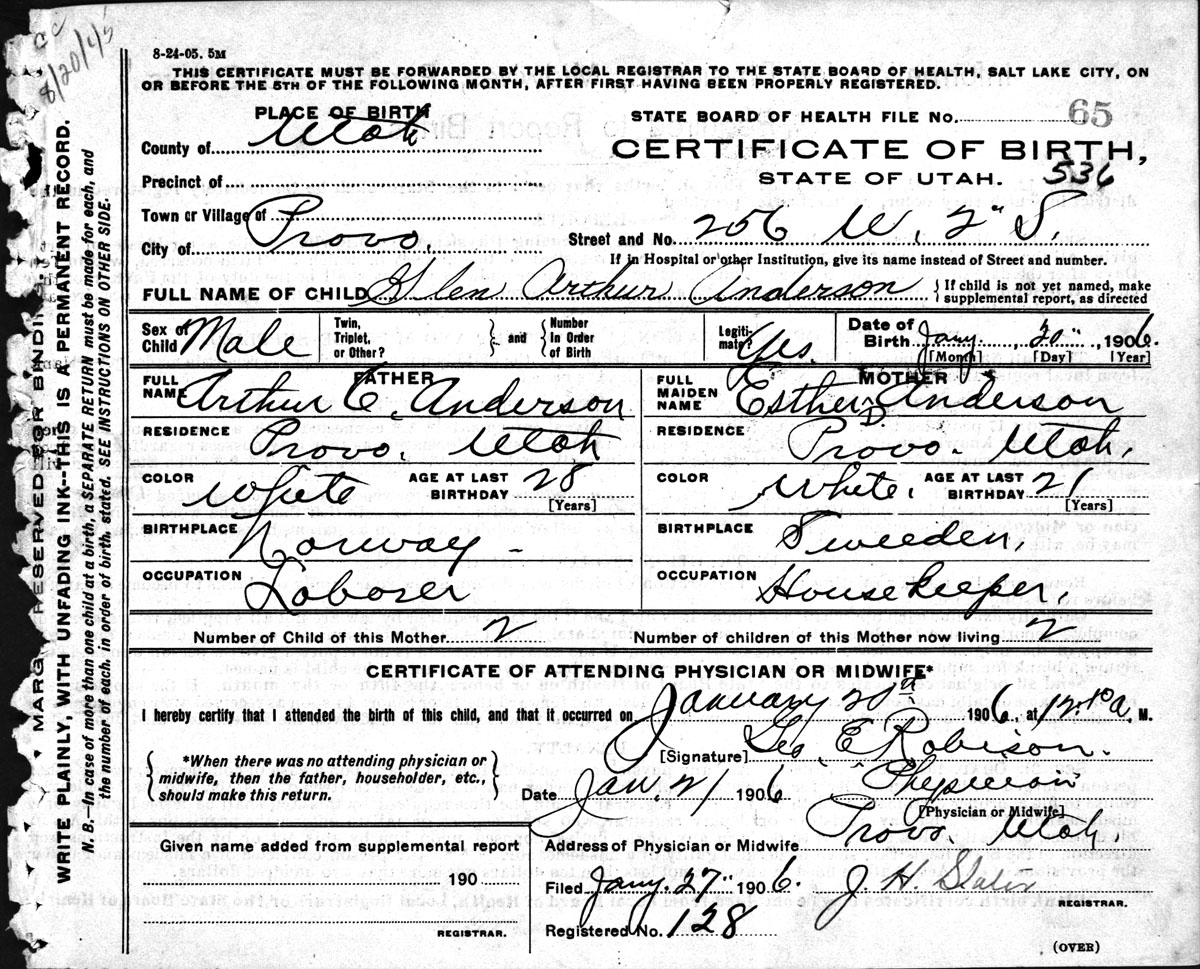 CC
8/20/45
8-24-05. 5M
THIS CERTIFICATE MUST BE FORWARDED BY THE LOCAL REGISTRAR TO THE STATE BOARD OF HEALTH, SALT LAKE CITY, ON
OR BEFORE THE 5TH OF THE FOLLOWING MONTH, AFTER FIRST HAVING BEEN PROPERLY REGISTERED.
PLACE OF BIRTH
County of Utah
Precinct of
Town or Village of
City of Provo.
STATE BOARD OF HEALTH FILE No. 65
CERTIFICATE OF BIRTH,
STATE OF UTAH. 536
Street and No. 256 W. 2" S.
If in Hospital or other Institution, give its name instead of Street and number.
FULL NAME OF CHILD Glen Arthur Anderson { If child is not yet named, make
supplemental report, as directed
Sex of
Child Male
Twin,
Triplet,
or Other? } and { Number
In Order
of Birth
Legiti-
mate? Yes.
Date of
Birth Jany. 20" 1906.
[Month] [Day] [Year]
FATHER
FULL
NAME Arthur C. Anderson
RESIDENCE Provo. Utah
COLOR White AGE AT LAST
BIRTHDAY 28
[Years]
BIRTHPLACE Norway -
OCCUPATION Laborer
MOTHER
FULL
MAIDEN
NAME Esther D. Anderson
RESIDENCE Provo. Utah.
COLOR White. AGE AT LAST
BIRTHDAY 21
[Years]
BIRTHPLACE Sweeden,
OCCUPATION Housekeeper,
Number of Child of this Mother 2 Number of children of this Mother now living 2
CERTIFICATE OF ATTENDING PHYSICIAN OR MIDWIFE*
I hereby certify that I attended the birth of this child, and that it occurred on January 20th 1906, at M.
[Signature] Geo. E Robison.
{ *When there was no attending physician or
midwife, then the father, householder, etc.,
should make this return. }
Date Jan. 21 1906 Physician
[Physician or Midwife]
Address of Physician or Midwife Provo. Utah.
Given name added from supplemental report
190
REGISTRAR.
Filed Jany. 27" 1906. J. H. Slater
REGISTRAR.
Registered No. 128
(OVER)
MARG RESERVED FOR BINDING
WRITE PLAINLY, WITH UNFADING INK--THIS IS A PERMANENT RECORD.
N. B.—In case of more than one child at a birth, a SEPARATE RETURN must be made for each, and
the number of each, in order of birth, stated. SEE INSTRUCTIONS ON OTHER SIDE.